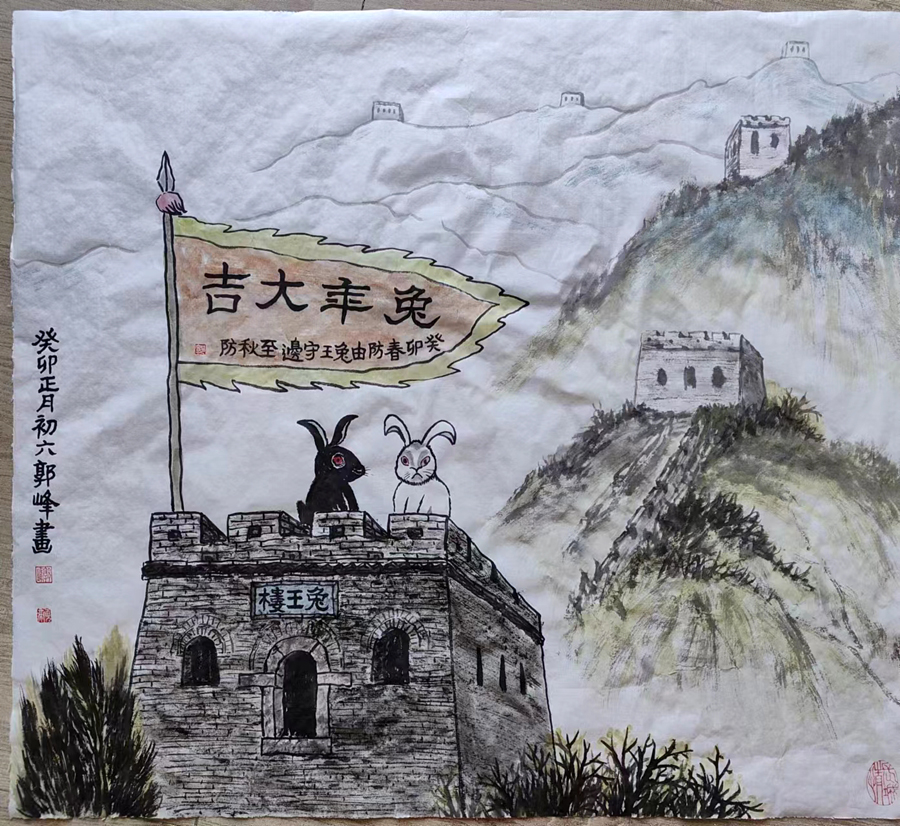 兔年大吉
癸卯春防由兔王守邊至秋防
兔王樓
癸卯正月初六郭峰畫